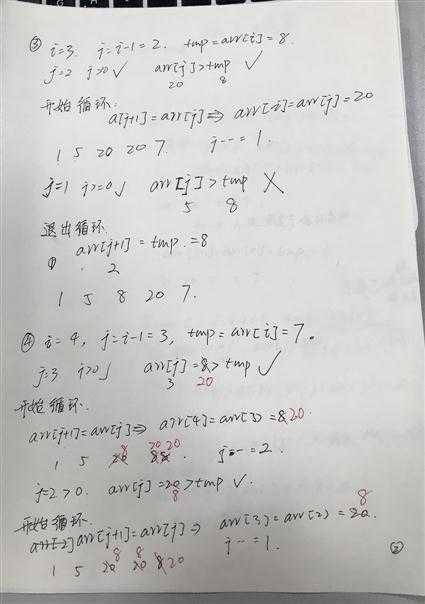 ③ i=3. j=i-1=2. tmp=arr[i]=8.
j=2 j>0✓ arr[j]>tmp ✓
20 8
开始循环.
a[j+1]=arr[j]⇒ arr[i]=arr[j]=20
1 5 20 20 7. j--=1.
j=1 j>=0✓ arr[j]>tmp ✗
5 8
退出循环
arr[j+1]=tmp.=8
2
1 5 8 20 7.
④ i=4, j=i-1=3, tmp=arr[i]=7。
j=3 j>0✓ arr[j]=8>tmp ✓
3 20
开始循环.
arr[j+1]=arr[j]⇒ arr[4]=arr[3]=8 20.
8 20 20
1 5 20 8 8 j--=2.
j=2>0. arr[j]=20>tmp ✓.
8
开始循环. 8
arr[-2] arr[j+1]=arr[j]⇒ arr[3]=arr[2]=20.
8 8 j--=1.
1 5 20 20 8 20
②